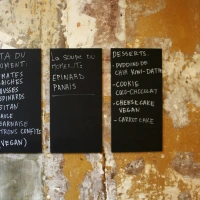 TA DU
OMENT:
MATES
AICHES
OUSSES
EPINARDS
EITAN
AULE
EARNAISE
TRONS CONFITS
VEGAN)
La SOUPE DU
MOMENT:
EPINARD
PANAIS
DESSERTS:
- PUDDING DE
CHIA KIWI-DATTE
- COOKIE
COCO-CHOCOLAT
- CHEESECAKE
VEGAN
- CARROT CAKE